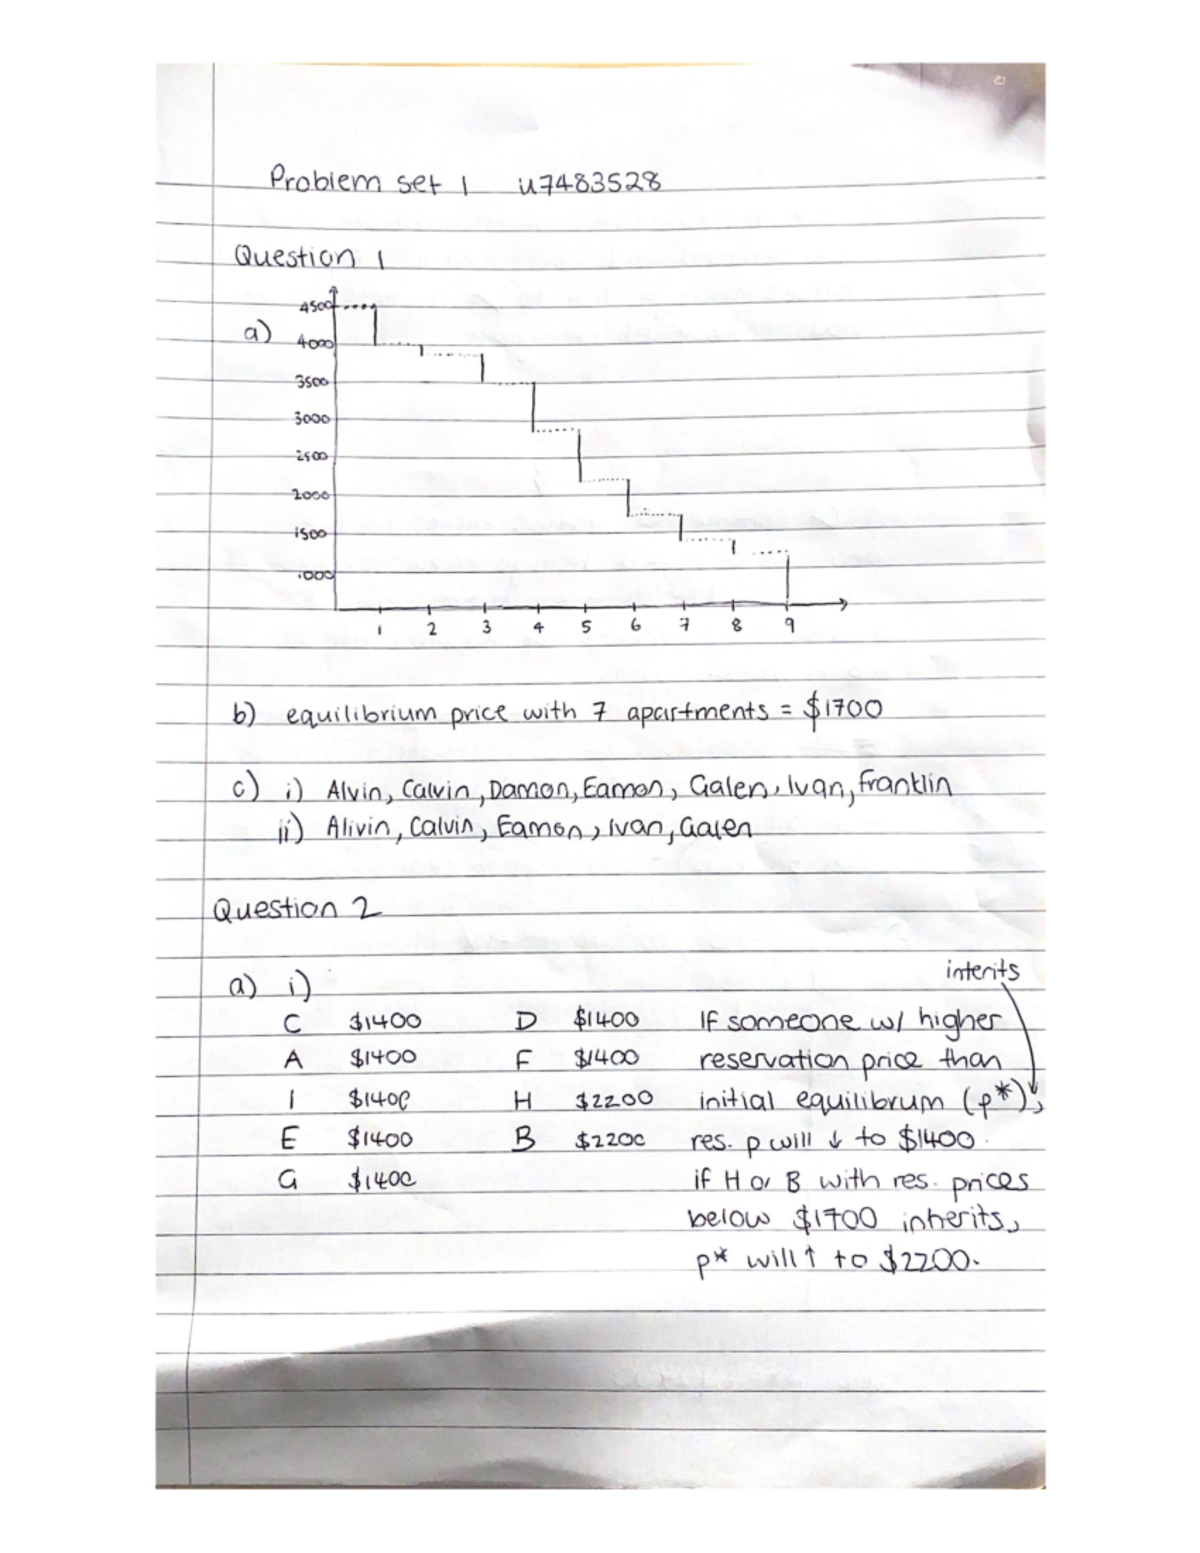 Problem set 1 u7483528
Question 1
a)
4500
4000
3500
3000
2500
2000
1500
1000
1 2 3 4 5 6 7 8 9
b) equilibrium price with 7 apartments = $1700
c) i) Alvin, Calvin, Damon, Eamon, Galen, Ivan, Franklin
ii) Alivin, Calvin, Eamon, Ivan, Galen
Question 2
interits
a) i)
C $1400 D $1400 If someone w/ higher
A $1400 F $1400 reservation price than
I $1400 H $2200 initial equilibrum (p*),
E $1400 B $2200 res. p will ↓ to $1400.
G $1400 if H or B with res. prices
below $1700 inherits,
p* will ↑ to $2200.